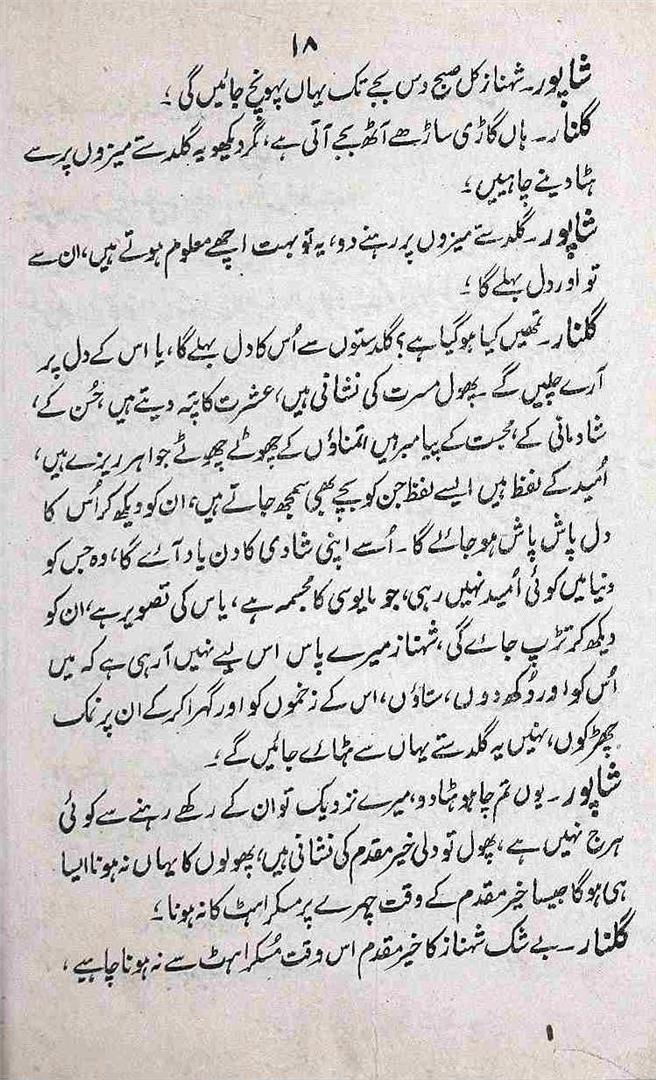 ۱۸
شاپور۔ شہناز کل صبح دس بجے تک یہاں پہونچ جائیں گی ؛
گلنار۔ ہاں گاڑی ساڑھے آٹھ بجے آتی ہے، مگر دیکھو یہ گلدستے میزوں پر سے
ہٹا دینے چاہییں ؛
شاپور۔ گلدستے میزوں پر رہنے دو، یہ تو بہت اچھے معلوم ہوتے ہیں، ان سے
تو اور دل بہلے گا ؛
گلنار۔ تمھیں کیا ہو گیا ہے؟ گلدستوں سے اُس کا دل بہلے گا، یا اس کے دل پر
آرے چلیں گے۔ پھول مسرت کی نشانی ہیں، عشرت کا پتہ دیتے ہیں، حُسن کے،
شادمانی کے، محبت کے پیامبر ہیں، تمناؤں کے چھوٹے چھوٹے جواہر ریزے ہیں،
اُمید کے لفظ ہیں ایسے لفظ جن کو بچے بھی سمجھ جاتے ہیں، ان کو دیکھ کر اُس کا
دل پاش پاش ہو جائے گا۔ اُسے اپنی شادی کا دن یاد آئے گا، وہ جس کو
دنیا میں کوئی اُمید نہیں رہی، جو مایوسی کا مجسمہ ہے، یاس کی تصویر ہے، ان کو
دیکھ کر تڑپ جائے گی، شہناز میرے پاس اس لیے نہیں آ رہی ہے کہ میں
اُس کو اور دُکھ دوں، ستاؤں، اس کے زخموں کو اور گہرا کر کے ان پر نمک
چھڑکوں، نہیں یہ گلدستے یہاں سے ہٹائے جائیں گے ؛
شاپور۔ یوں تم چاہو ہٹا دو، میرے نزدیک تو ان کے رکھے رہنے سے کوئی
ہرج نہیں ہے، پھول تو دلی خیر مقدم کی نشانی ہیں، پھولوں کا یہاں نہ ہونا ایسا
ہی ہوگا جیسا خیر مقدم کے وقت چہرے پر مسکراہٹ کا نہ ہونا ؛
گلنار۔ بے شک شہناز کا خیر مقدم اس وقت مُسکراہٹ سے نہ ہونا چاہیے ،